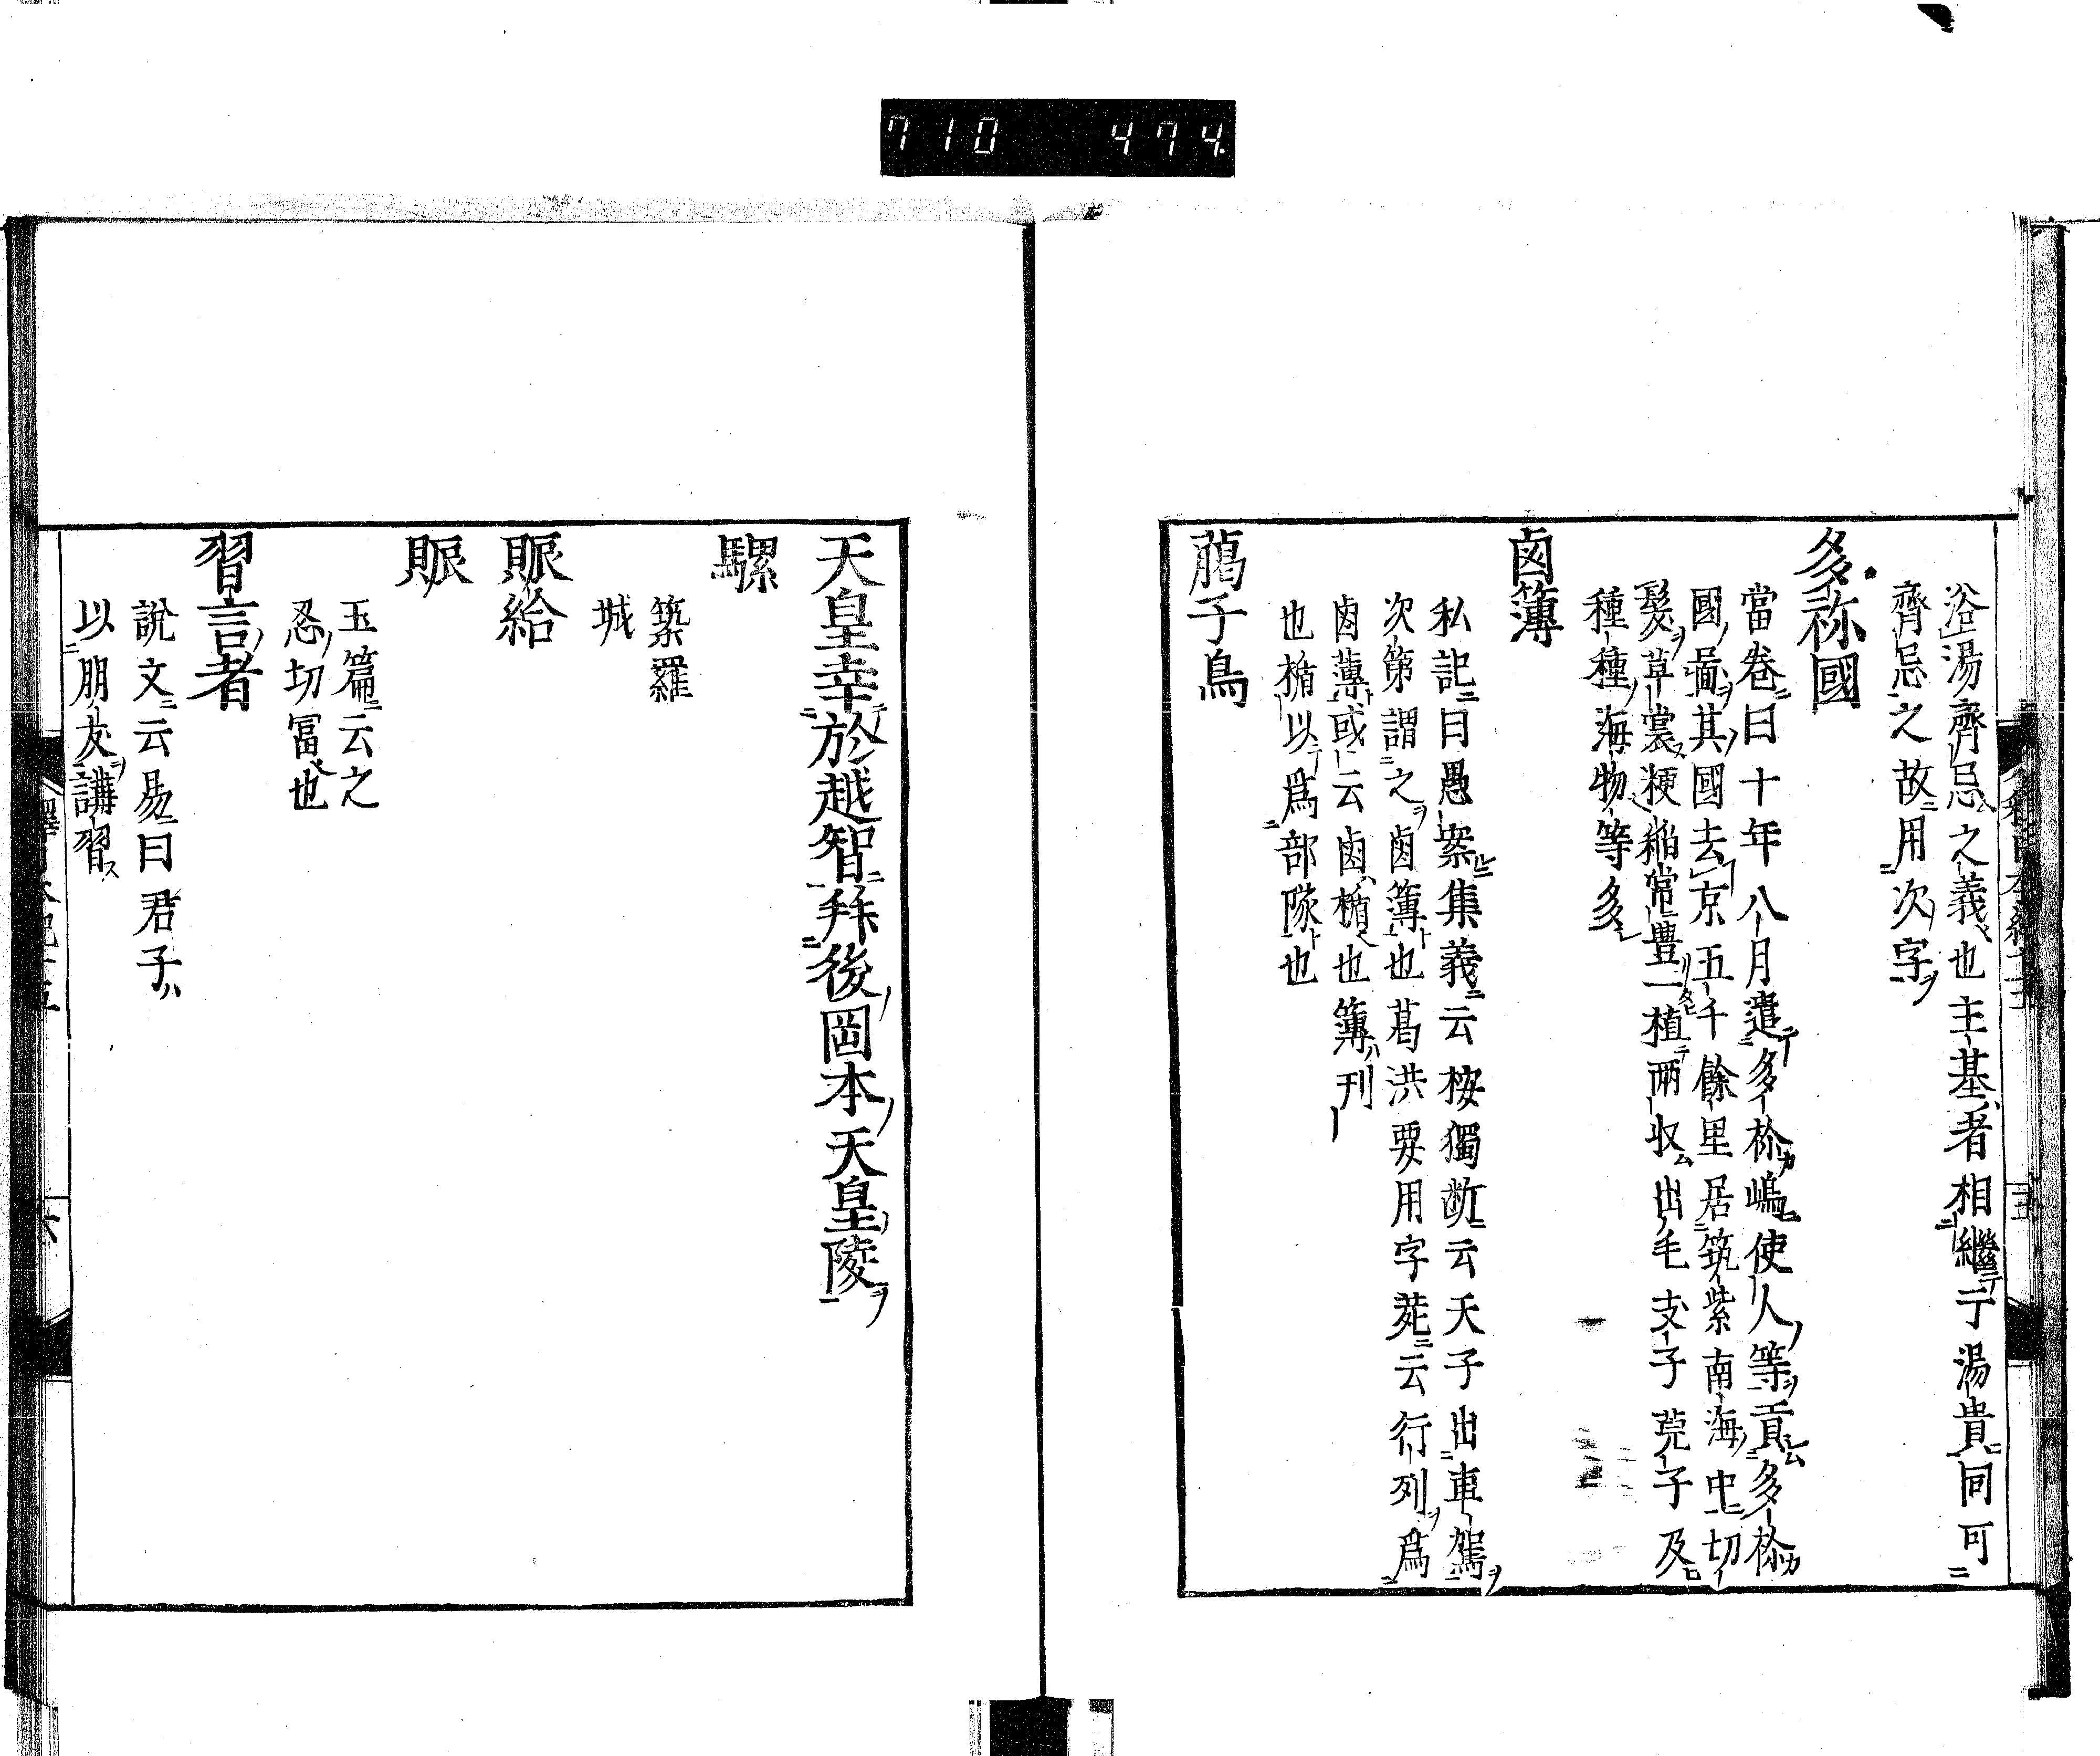 710 474.
浴湯齊忌之義也主基者相繼亍湯貴同可
齊忌之故用次字
多祢國
當卷曰十年八月遣多祢嶋使人等貢多祢
國圖其國去京五千餘里居筑紫南海中切
髮草裳粳稲常豊一植兩収出毛支子莞子及
種種海物等多
鹵簿
私記曰愚案集義云按獨断云天子出車駕
次第謂之鹵簿也葛洪要用字苑云行列爲
鹵薄或云鹵楯也簿刊
也楯以爲部隊也
臈子鳥
天皇幸於越智拜後岡本天皇陵
騾
築羅
城
賑給
賑
玉篇云之
忍切冨也
習言者
說文云易曰君子
以朋友講習